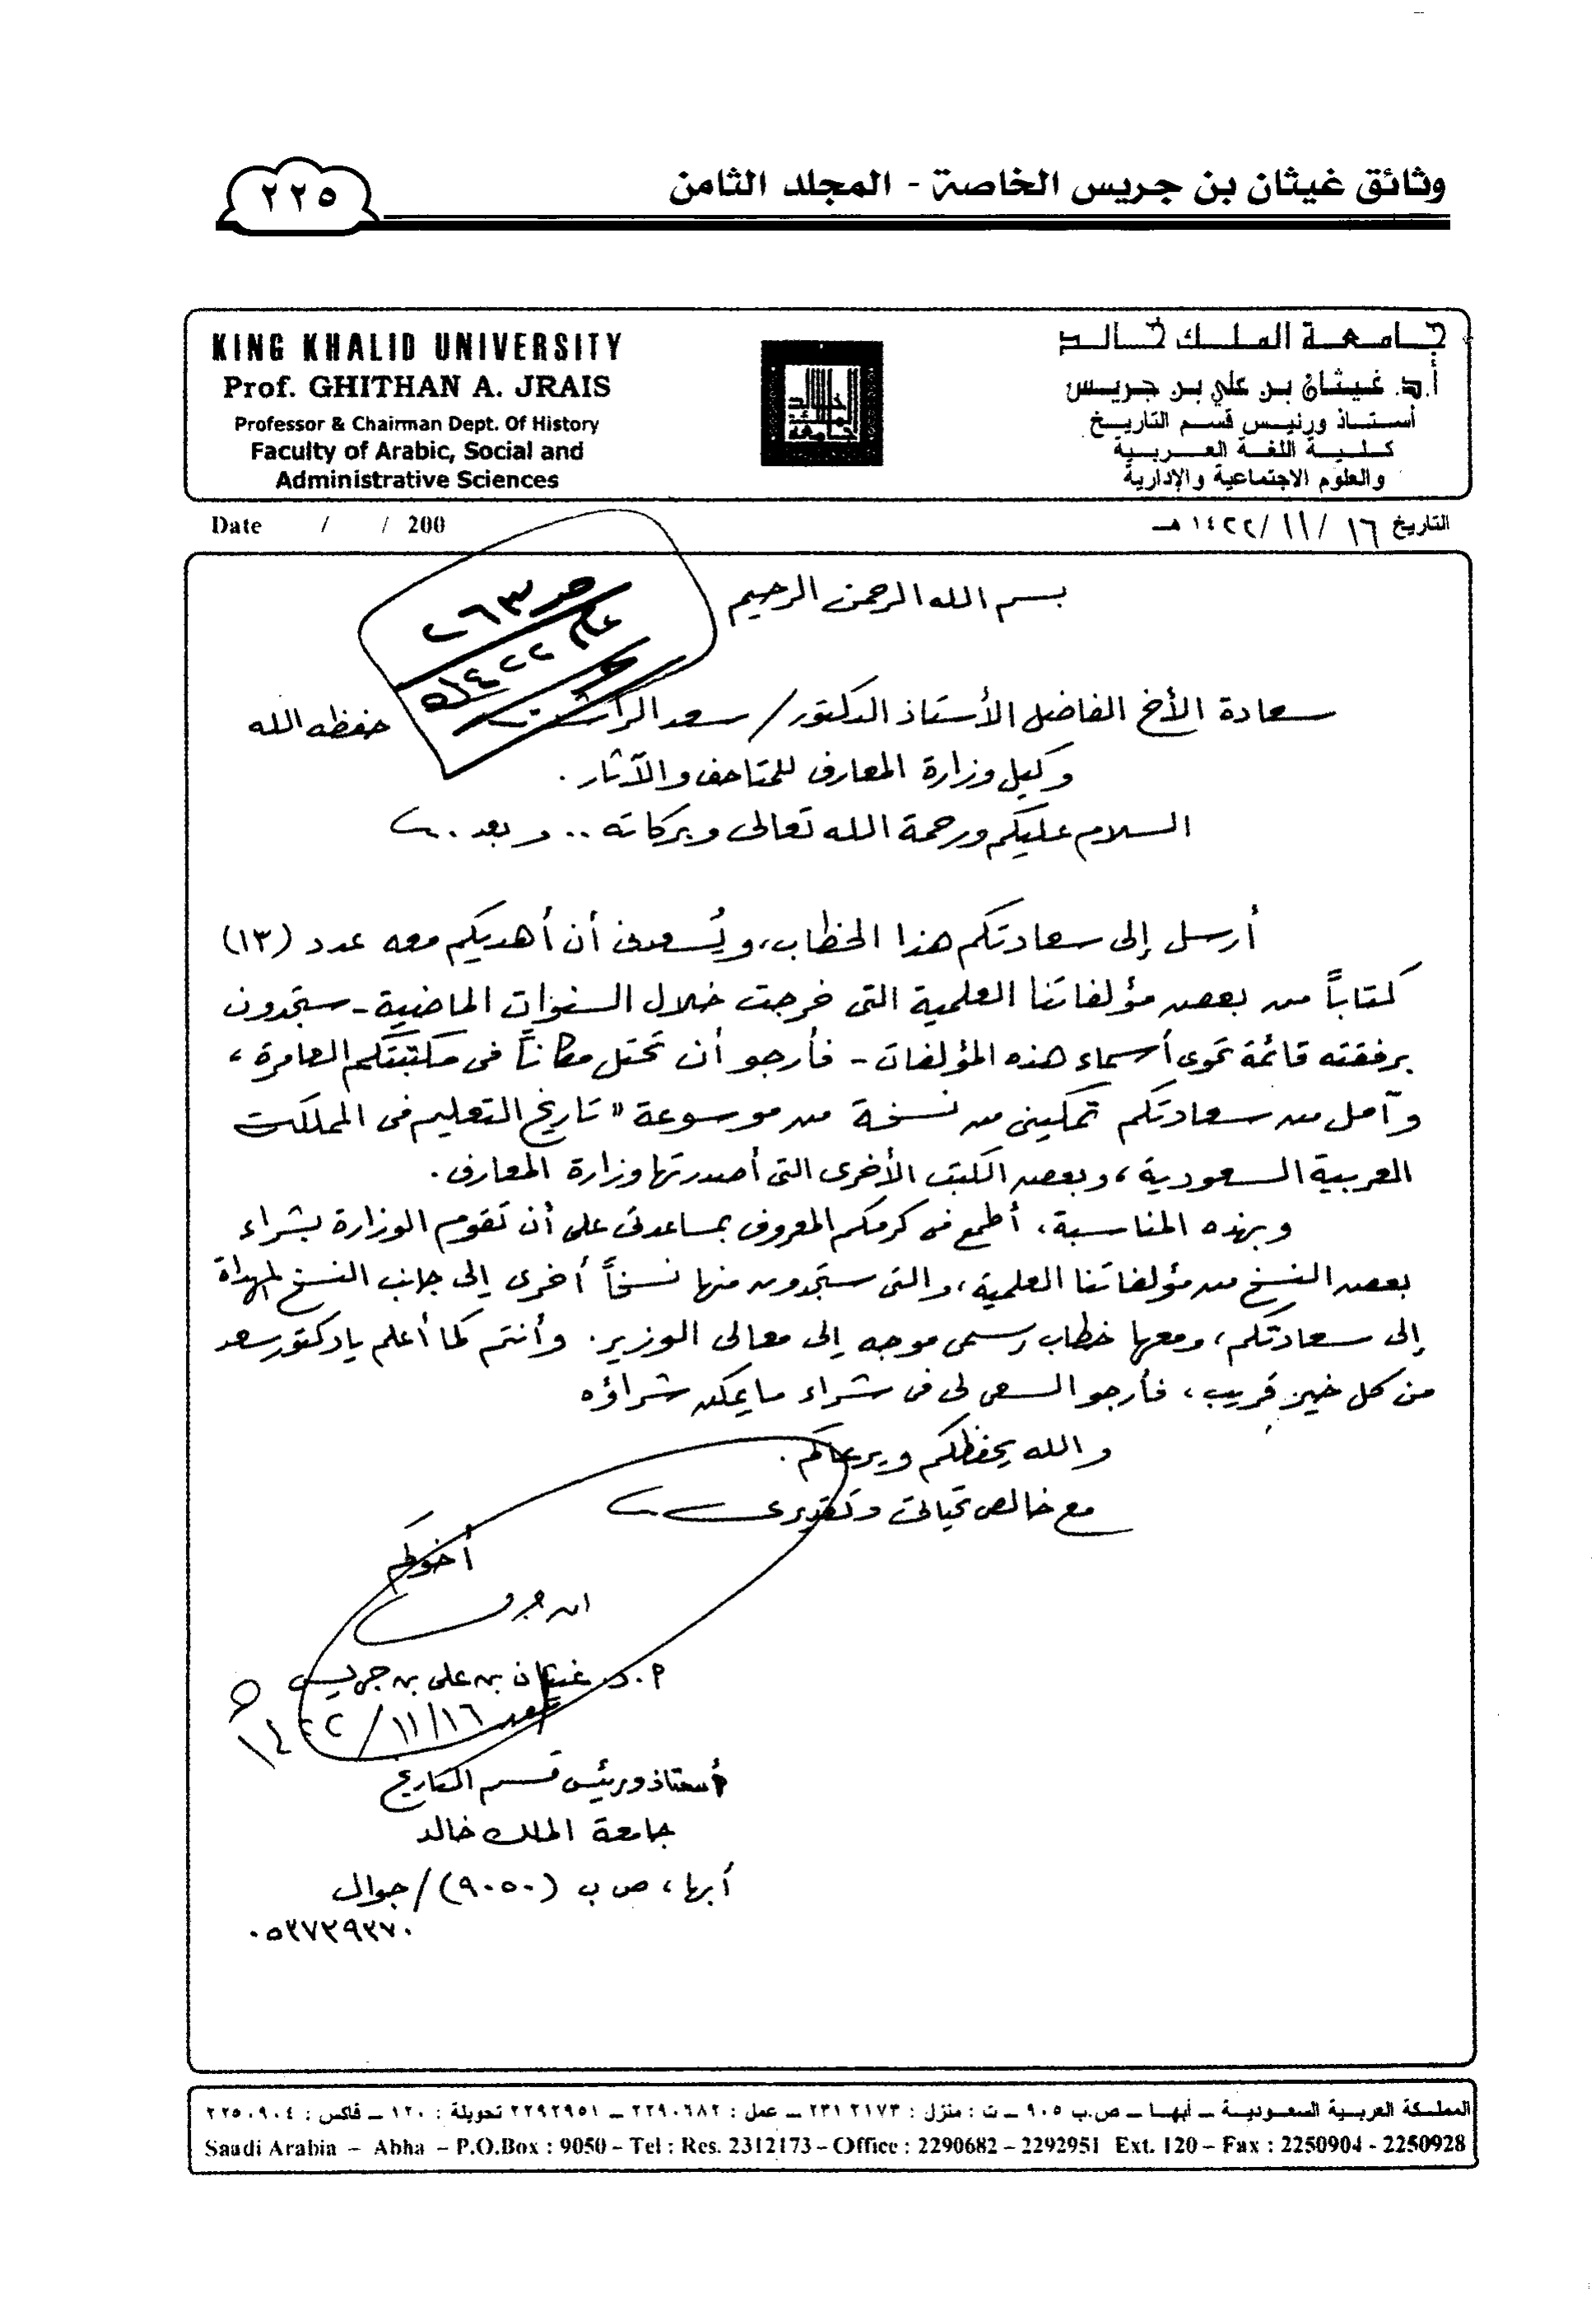 وثائق غيثان بن جريس الخاصة - المجلد الثامن
٢٢٥
جامعة الملك خالد
أ.د. غيثان بن علي بن جريس
أستاذ ورئيس قسم التاريخ
كلية اللغة العربية
والعلوم الاجتماعية والإدارية
KING KHALID UNIVERSITY
Prof. GHITHAN A. JRAIS
Professor & Chairman Dept. Of History
Faculty of Arabic, Social and
Administrative Sciences
التاريخ ١٦ / ١١ / ١٤٢٢ هـ
Date / / 200
بسم الله الرحمن الرحيم
ص ٢٦٣
عام
١٤٢٢هـ
سعادة الأخ الفاضل الأستاذ الدكتور / سعد الراشد حفظه الله
وكيل وزارة المعارف للمتاحف والآثار .
السلام عليكم ورحمة الله تعالى وبركاته .. وبعد ..
أرسل إلى سعادتكم هذا الخطاب، ويُسعدني أن أهديكم معه عدد (١٣)
كتاباً من بعض مؤلفاتنا العلمية التي خرجت خلال السنوات الماضية - ستجدون
برفقته قائمة تحوي أسماء هذه المؤلفات - فأرجو أن تحتل مكاناً في مكتبتكم العامرة ،
وآمل من سعادتكم تمكيني من نسخة من موسوعة " تاريخ التعليم في المملكت
العربية السعودية ، وبعض الكتب الأخرى التي أصدرتها وزارة المعارف .
وبهذه المناسبة ، أطمع في كرمكم المعروف بمساعدتي على أن تقوم الوزارة بشراء
بعض النسخ من مؤلفاتنا العلمية ، والتي ستجدون منها نسخاً أخرى إلى جانب النسخ المهداة
إلى سعادتكم ، ومعها خطاب رسمي موجه إلى معالي الوزير . وأنتم كما أعلم يا دكتور سعد
من كل خير قريب ، فأرجو السعي لي في شراء ما يمكن شراؤه
والله يحفظكم ويرعاكم .
مع خالص تحياتي وتقديري
أخوكم
ابن جريس
أ . د. غيثان بن علي بن جريس
١٦ / ١١ / ١٤٢٢ هـ
أستاذ ورئيس قسم التاريخ
جامعة الملك خالد
أبها ، ص ب (٩٠٥٠) / جوال
٠٥٣٧٣٩٣٧٠
المملكة العربية السعودية – أبها – ص.ب ٩٠٥ – ت : منزل : ٢٣١٢١٧٣ – عمل : ٢٢٩٠٦٨٢ – ٢٢٩٢٩٥١ تحويلة : ١٢٠ – فاكس : ٢٢٥٠٩٠٤
Saudi Arabia – Abha – P.O.Box : 9050 – Tel : Res. 2312173 – Office : 2290682 – 2292951 Ext. 120 – Fax : 2250904 - 2250928